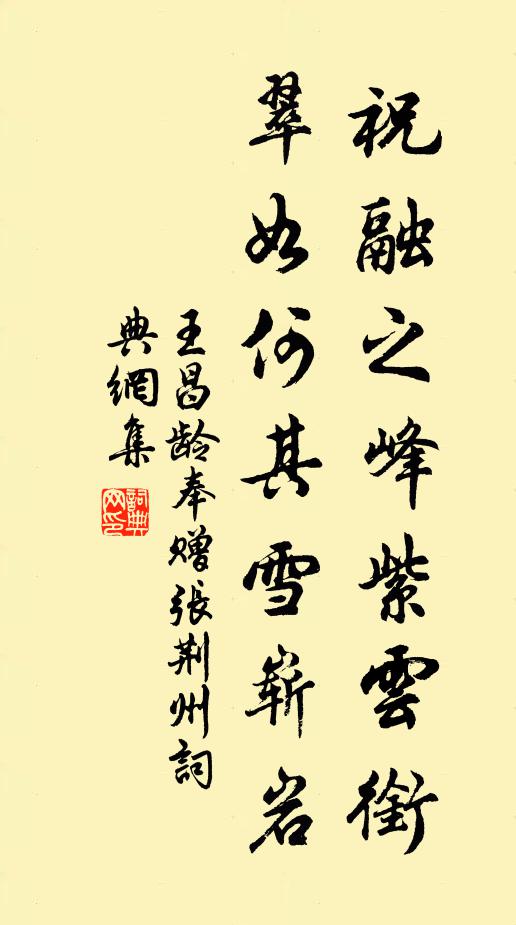 祝融之峰紫雲銜
翠如何其雪嶄岩
王昌齡奉贈張荆州詞
典網集
詞典網印